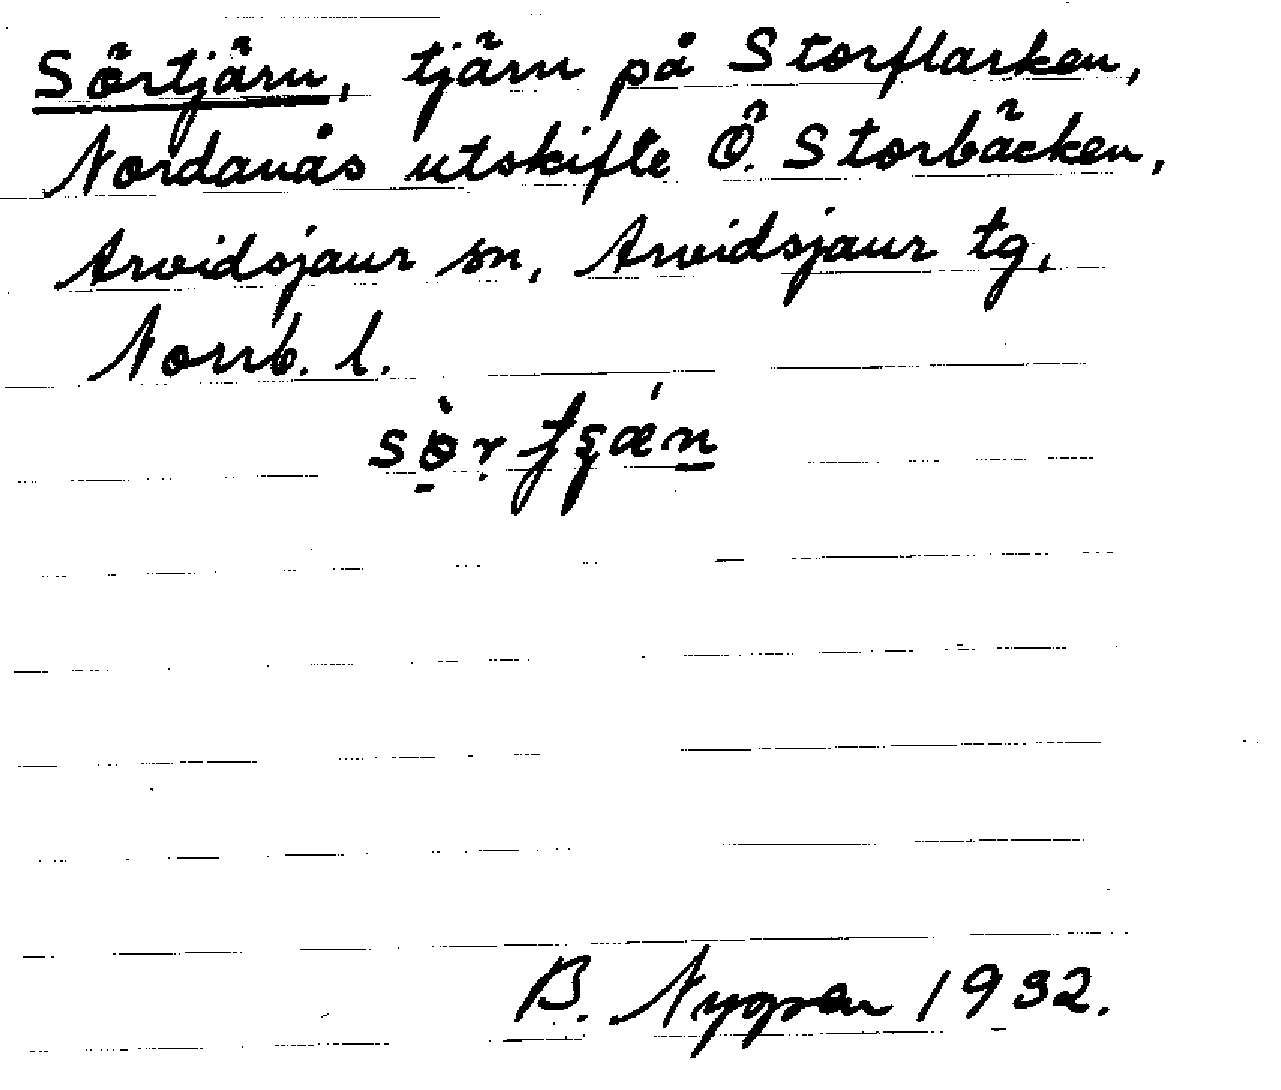 Sörtjärn, tjärn på Storflarken,
Nordanås utskifte Ö. Storbäcken,
Arvidsjaur sn, Arvidsjaur tg,
Norrb. l.
B. Nygren 1932.